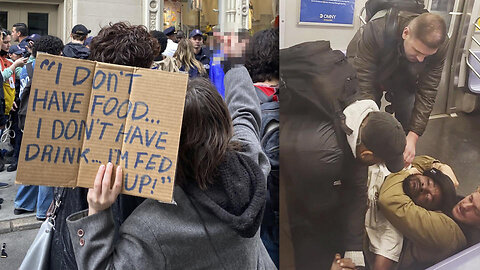 "I DON'T
HAVE FOOD...
I DON'T HAVE
DRINK... IM FED
UP!"
OMNY